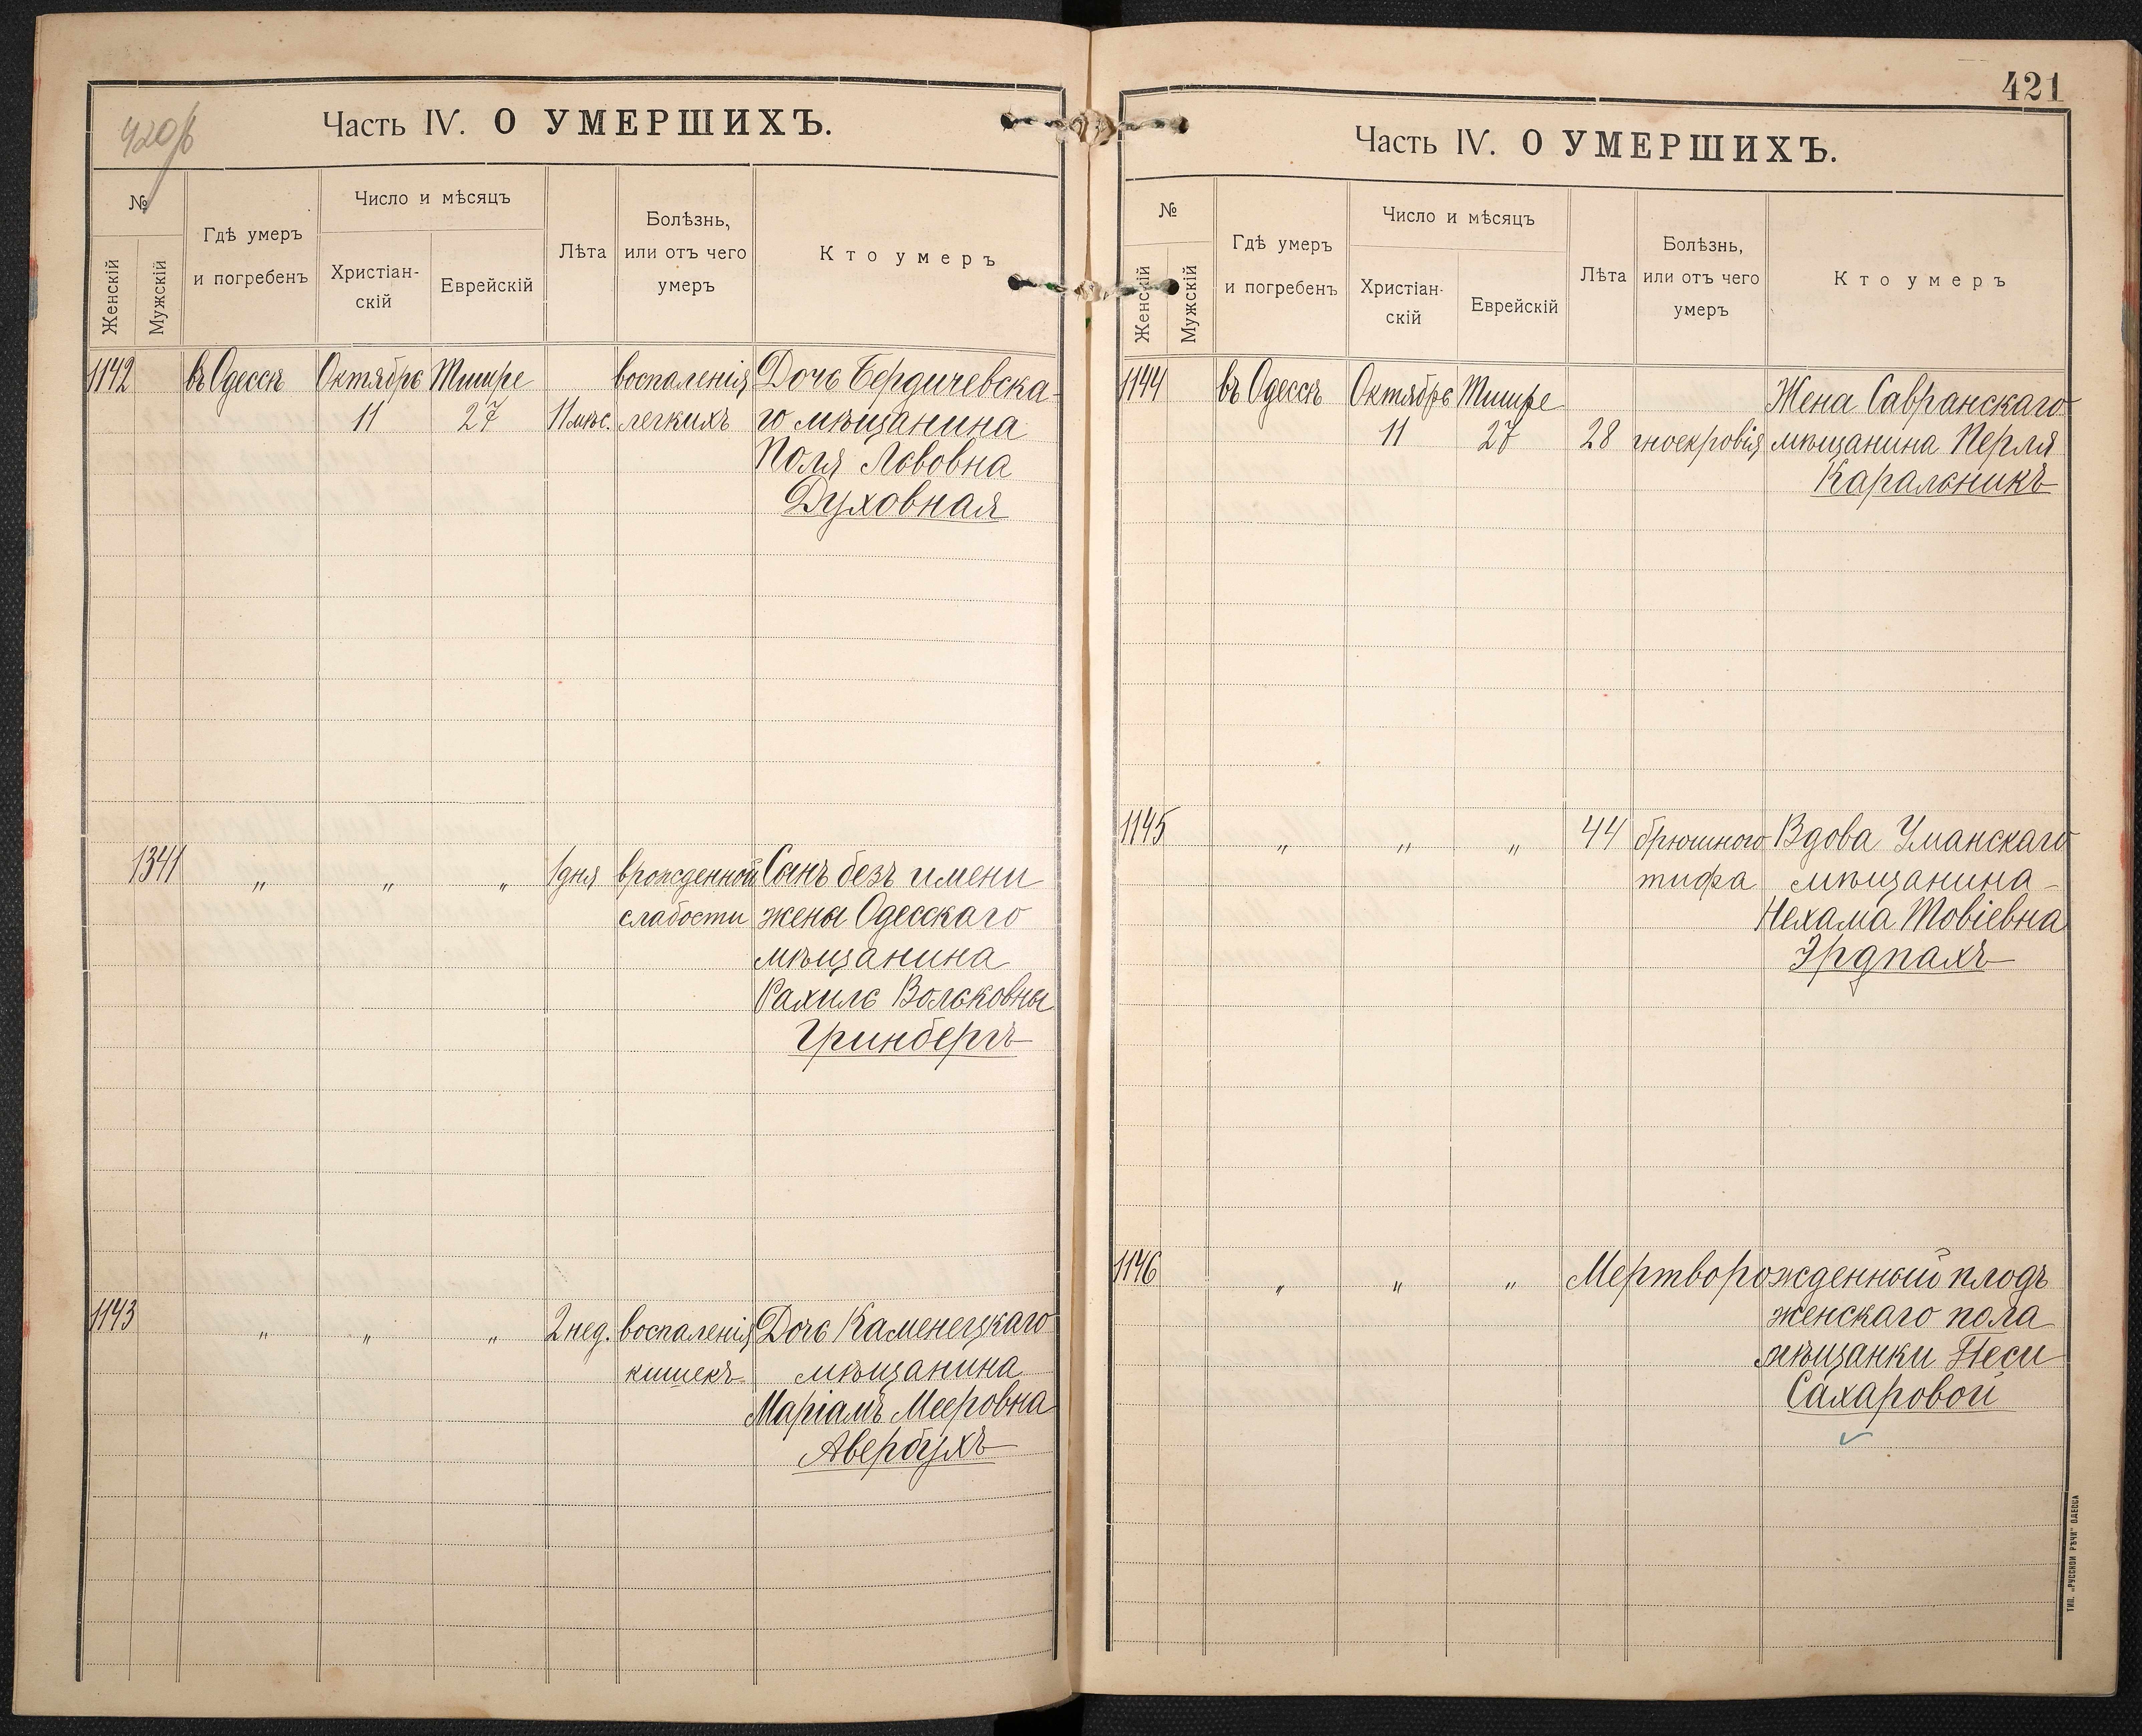 420б
Часть IV. О УМЕРШИХЪ.
№
Женскій
Мужскій
Гдѣ умеръ
и погребенъ
Число и мѣсяцъ
Христіан-
скій
Еврейскій
Лѣта
Болѣзнь,
или отъ чего
умеръ
Кто умеръ
1142 въ Одессѣ Октябрь Тишре воспаленія Дочь Бердичевска-
11 27 11 мѣс. легкихъ го мѣщанина
Поля Львовна
Духовная
1341 " " " 1 дня врожденной Сынъ безъ имени
слабости жены Одесскаго
мѣщанина
Рахиль Вольковны
Гринбергъ
1143 " " " 2 нед. воспаленія Дочь Каменецкаго
кишекъ мѣщанина
Маріамъ Мееровна
Авербухъ
421
Часть IV. О УМЕРШИХЪ.
№
Женскій
Мужскій
Гдѣ умеръ
и погребенъ
Число и мѣсяцъ
Христіан-
скій
Еврейскій
Лѣта
Болѣзнь,
или отъ чего
умеръ
Кто умеръ
1144 въ Одессѣ Октябрь Тишре Жена Савранскаго
11 27 28 гноекровія мѣщанина Перля
Каральникъ
1145 " " " 44 брюшного Вдова Уманскаго
тифа мѣщанина
Нехама Товіевна
Эрдпахъ
1146 " " " Мертворожденный плодъ
женскаго пола
мѣщанки Песи
Сахаровой
ТИП. „РУССКОЙ РѢЧИ" ОДЕССА